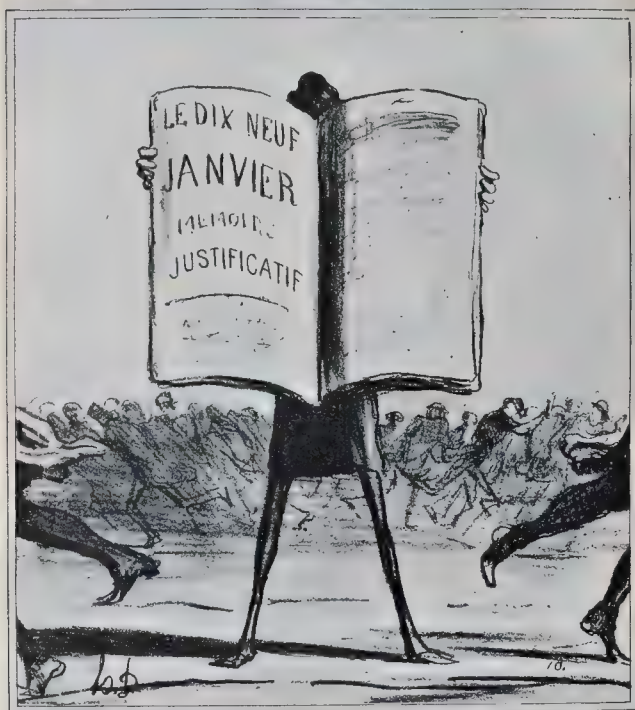 LE DIX NEUF
JANVIER
MEMOIRE
JUSTIFICATIF
h.D